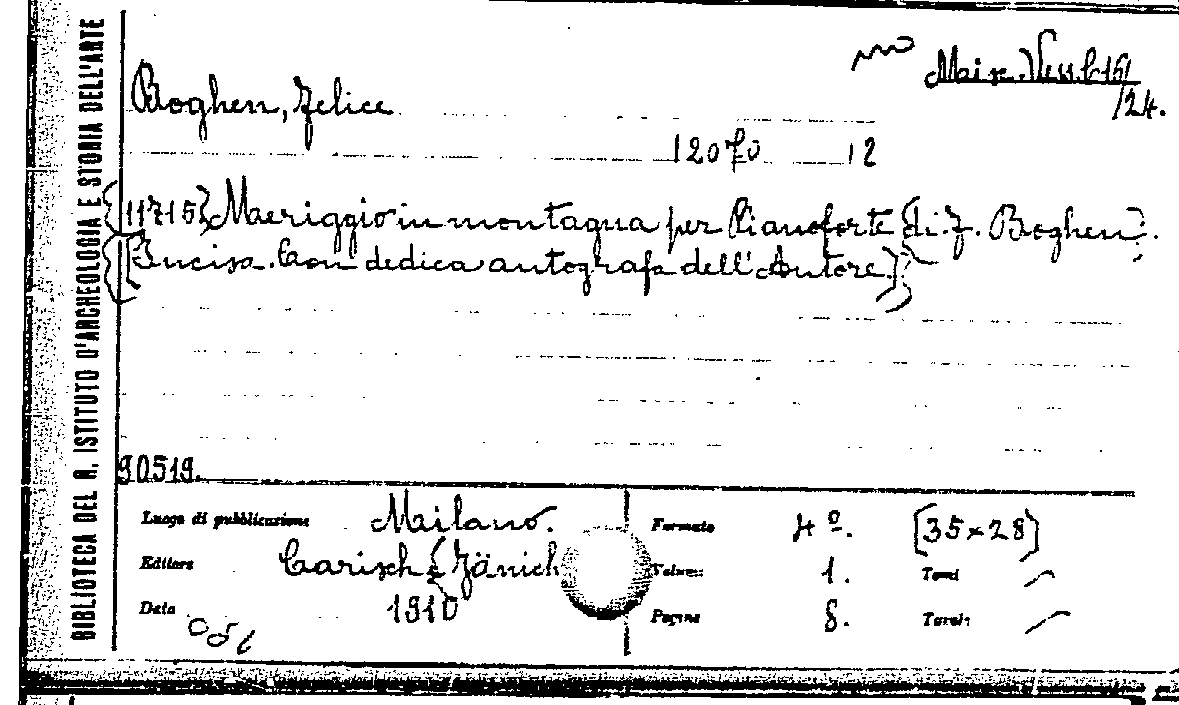 BIBLIOTECA DEL R. ISTITUTO D'ARCHEOLOGIA E STORIA DELL'ARTE
Boghen, Felice
/24.
12070 12
11715 Meriggio in montagna per Pianoforte di F. Boghen.
[Incisa. Con dedica autografa dell'Autore]
90519.
Luogo di pubblicazione Milano. Formato 4º. [35×28]
Editore Carisch & Jänich Volumi 1. Tomi
Data 1910 Pagine 8. Tavole